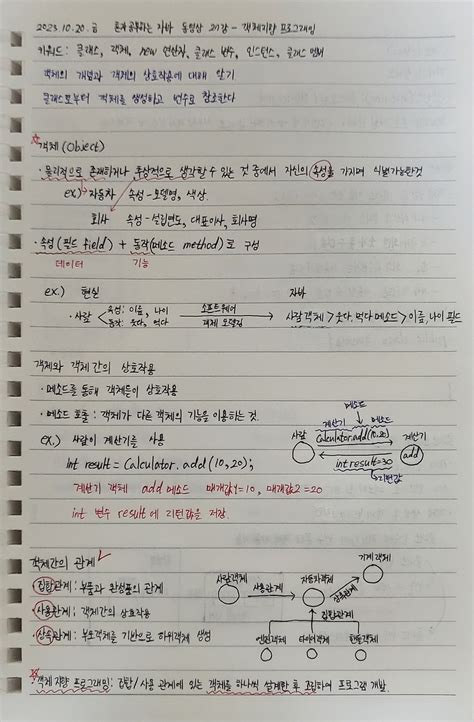 2023.10.20.금 혼자공부하는 자바 동영상 21강 - 객체지향 프로그래밍
키워드: 클래스, 객체, new 연산자, 클래스 변수, 인스턴스, 클래스 멤버
객체의 개념과 객체의 상호작용에 대해 알기
클래스로부터 객체를 생성하고 변수로 참조한다
☆객체(Object)
· 물리적으로 존재하거나 추상적으로 생각할 수 있는 것 중에서 자신의 속성을 가지며 식별가능한것
ex) 자동차 속성-모델명, 색상.
회사 속성-설립연도, 대표이사, 회사명
· 속성(필드 field) + 동작(메소드 method)로 구성
데이터 기능
ex.) 현실 자바
· 사람 < 속성: 이름, 나이 소프트웨어 사람객체 > 웃다, 먹다 메소드 > 이름, 나이 필드
동작: 웃다, 먹다 객체 모델링
객체와 객체간의 상호작용
· 메소드를 통해 객체들이 상호작용
· 메소드 호출: 객체가 다른 객체의 기능을 이용하는 것.
ex.) 사람이 계산기를 사용
int result = Calculator.add(10,20);
계산기 객체 add 메소드 매개값1=10, 매개값2=20
int 변수 result에 리턴값을 저장.
메소드
계산기 메소드
사람 Calculator.add(10,20) 계산기
add
int result=30
리턴값
객체간의 관계
· 집합관계: 부품과 완성품의 관계
· 사용관계: 객체간의 상호작용
· 상속관계: 부모객체를 기반으로 하위객체 생성
기계객체
사람객체 자동차객체
사용관계 상속관계
집합관계
엔진객체 타이어객체 핸들객체
☆객체 지향 프로그래밍: 집합/사용 관계에 있는 객체를 하나씩 설계한 후 조립하여 프로그램 개발.